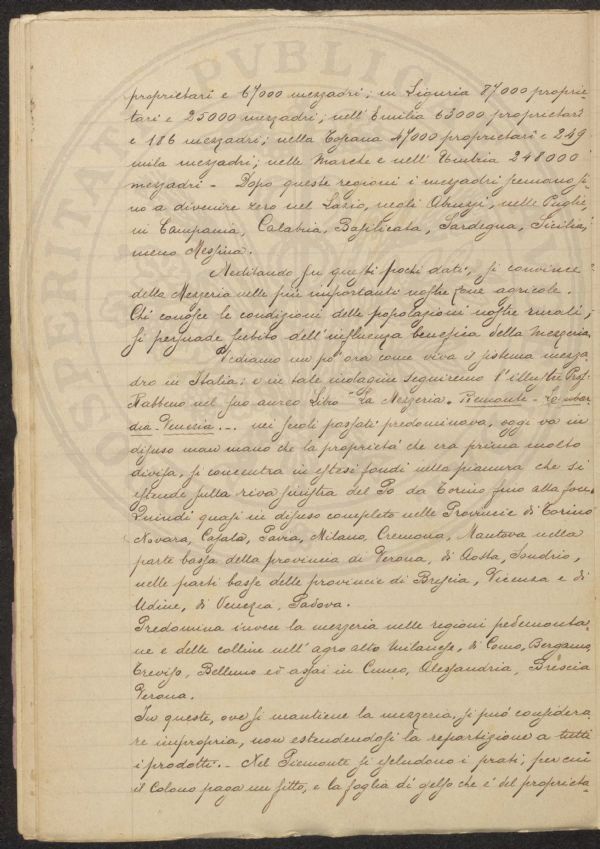 proprietari e 67000 mezzadri; in Liguria 87000 proprie-
tari e 25000 mezzadri; nell'Emilia 63000 proprietari
e 186 mezzadri; nella Toscana 47000 proprietari e 249
mila mezzadri; nelle Marche e nell'Umbria 248000
mezzadri - Dopo queste regioni i mezzadri scemano fi-
no a divenire zero nel Lazio, negli Abruzzi, nelle Puglie,
in Campania, Calabria, Basilicata, Sardegna, Sicilia,
meno Messina.
Meditando su questi pochi dati, si convince
della Mezzeria nelle più importanti nostre zone agricole.
Chi conosce le condizioni delle popolazioni nostre rurali,
si persuade subito dell'influenza benefica della Mezzeria.
Vediamo un po' ora come viva il sistema mezza-
dro in Italia; e in tale indagine seguiremo l'illustre Prof.
Rabbeno nel suo aureo Libro "La Mezzeria. Piemonte - Lombar
dia - Venezia... nei secoli passati predominava, oggi va in
disuso man mano che la proprietà che era prima molto
divisa, si concentra in estesi fondi nella pianura che si
estende sulla riva sinistra del Po da Torino fino alla foce.
Quindi quasi in disuso completo nelle Provincie di Torino
Novara, Casale, Pavia, Milano, Cremona, Mantova nella
parte bassa della provincia di Verona, di Aosta, Sondrio,
nelle parti basse delle provincie di Brescia, Vicenza e di
Udine, di Venezia, Padova.
Predomina invece la mezzeria nelle regioni pedemonta-
ne e delle colline nell'agro alto Milanese, di Como, Bergamo,
Treviso, Belluno ed assai in Cuneo, Alessandria, Brescia
Verona.
In queste, ove si mantiene la mezzeria, si può considera
re impropria, non estendendosi la repartizione a tutti
i prodotti. - Nel Piemonte si escludono i prati, per cui
il Colono paga un fitto, e la foglia di gelso che è del proprieta-